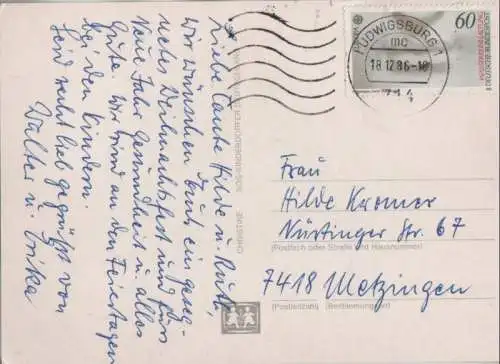 Liebe Tante Hilde u. Ruth,
Wir wünschen Euch ein geseg-
netes Weihnachtsfest und fürs
Neue Jahr Gesundheit u. alles
Gute. Wir sind an den Feiertagen
bei den Kindern.
Seid recht lieb gegrüßt von
Walter u. Erika
CHRISTIANE
SOS-KINDERDÖRFER
LUDWIGSBURG 1
mc
18.12.86-18
714
60
DEUTSCHE BUNDESPOST
Frau
Hilde Kromer
Nürtinger Str. 67
(Postfach oder Straße und Hausnummer)
7418 Metzingen
(Postleitzahl) (Bestimmungsort)